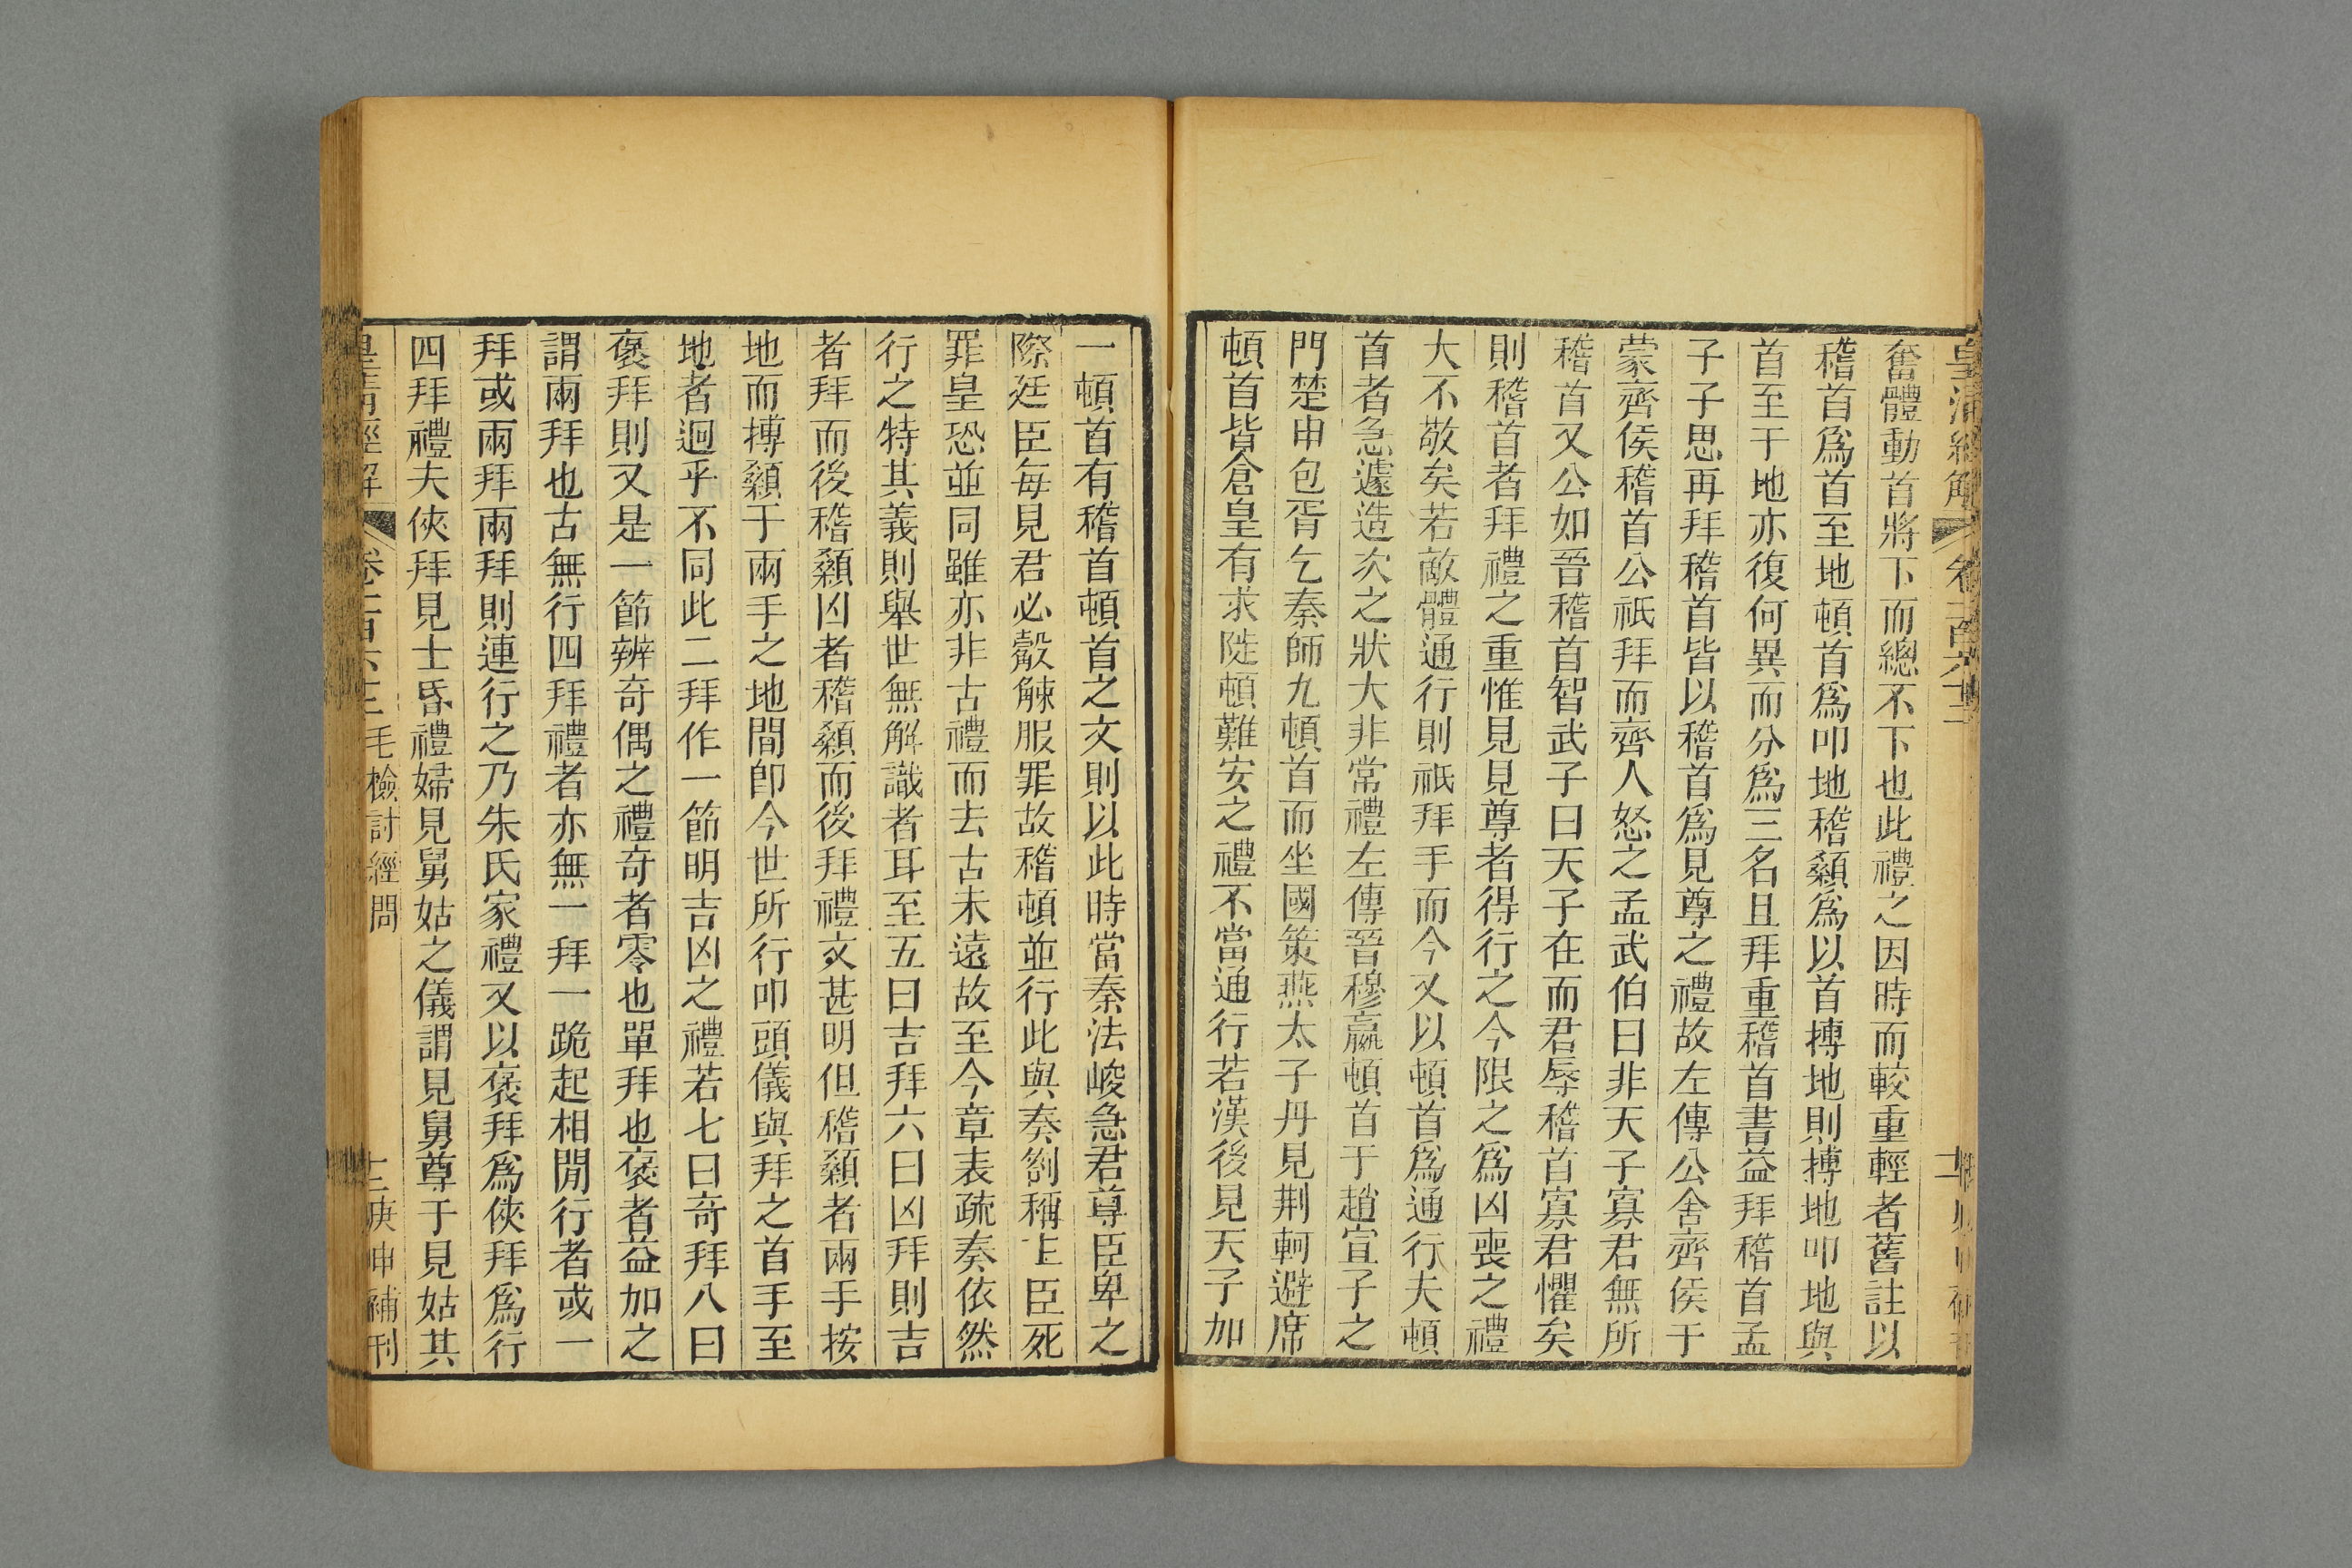 皇清經解 卷一百六十三 二
奮體動首將下而總不下也此禮之因時而較重輕者舊註以
稽首爲首至地頓首爲叩地稽顙爲以首搏地則搏地叩地與
首至于地亦復何異而分爲三名且拜重稽首書益拜稽首孟
子子思再拜稽首皆以稽首爲見尊之禮故左傳公會齊侯于
蒙齊侯稽首公祇拜而齊人怒之孟武伯曰非天子寡君無所
稽首又公如晉稽首智武子曰天子在而君辱稽首寡君懼矣
則稽首者拜禮之重惟見見尊者得行之今限之爲凶喪之禮
大不敬矣若敵體通行則祇拜手而今又以頓首爲通行夫頓
首者急遽造次之狀大非常禮左傳晉穆嬴頓首于趙宣子之
門楚申包胥乞秦師九頓首而坐國策燕太子丹見荆軻避席
頓首皆倉皇有求陡頓難安之禮不當通行若漢後見天子加
一頓首有稽首頓首之文則以此時當秦法峻急君尊臣卑之
際廷臣每見君必觳觫服罪故稽頓並行此與奏劄稱上臣死
罪皇恐並同雖亦非古禮而去古未遠故至今章表疏奏依然
行之特其義則舉世無解識者耳至五曰吉拜六曰凶拜則吉
者拜而後稽顙凶者稽顙而後拜禮文甚明但稽顙者兩手按
地而搏顙于兩手之地間卽今世所行叩頭儀與拜之首手至
地者迥乎不同此二拜作一節明吉凶之禮若七曰奇拜八曰
褒拜則又是一節辨奇偶之禮奇者零也單拜也褒者益加之
謂兩拜也古無行四拜禮者亦無一拜一跪起相閒行者或一
拜或兩拜兩拜則連行之乃朱氏家禮又以褒拜爲俠拜爲行
四拜禮夫俠拜見士昏禮婦見舅姑之儀謂見舅尊于見姑其
皇清經解 卷一百六十三 毛檢討經問 三 庚申補刊